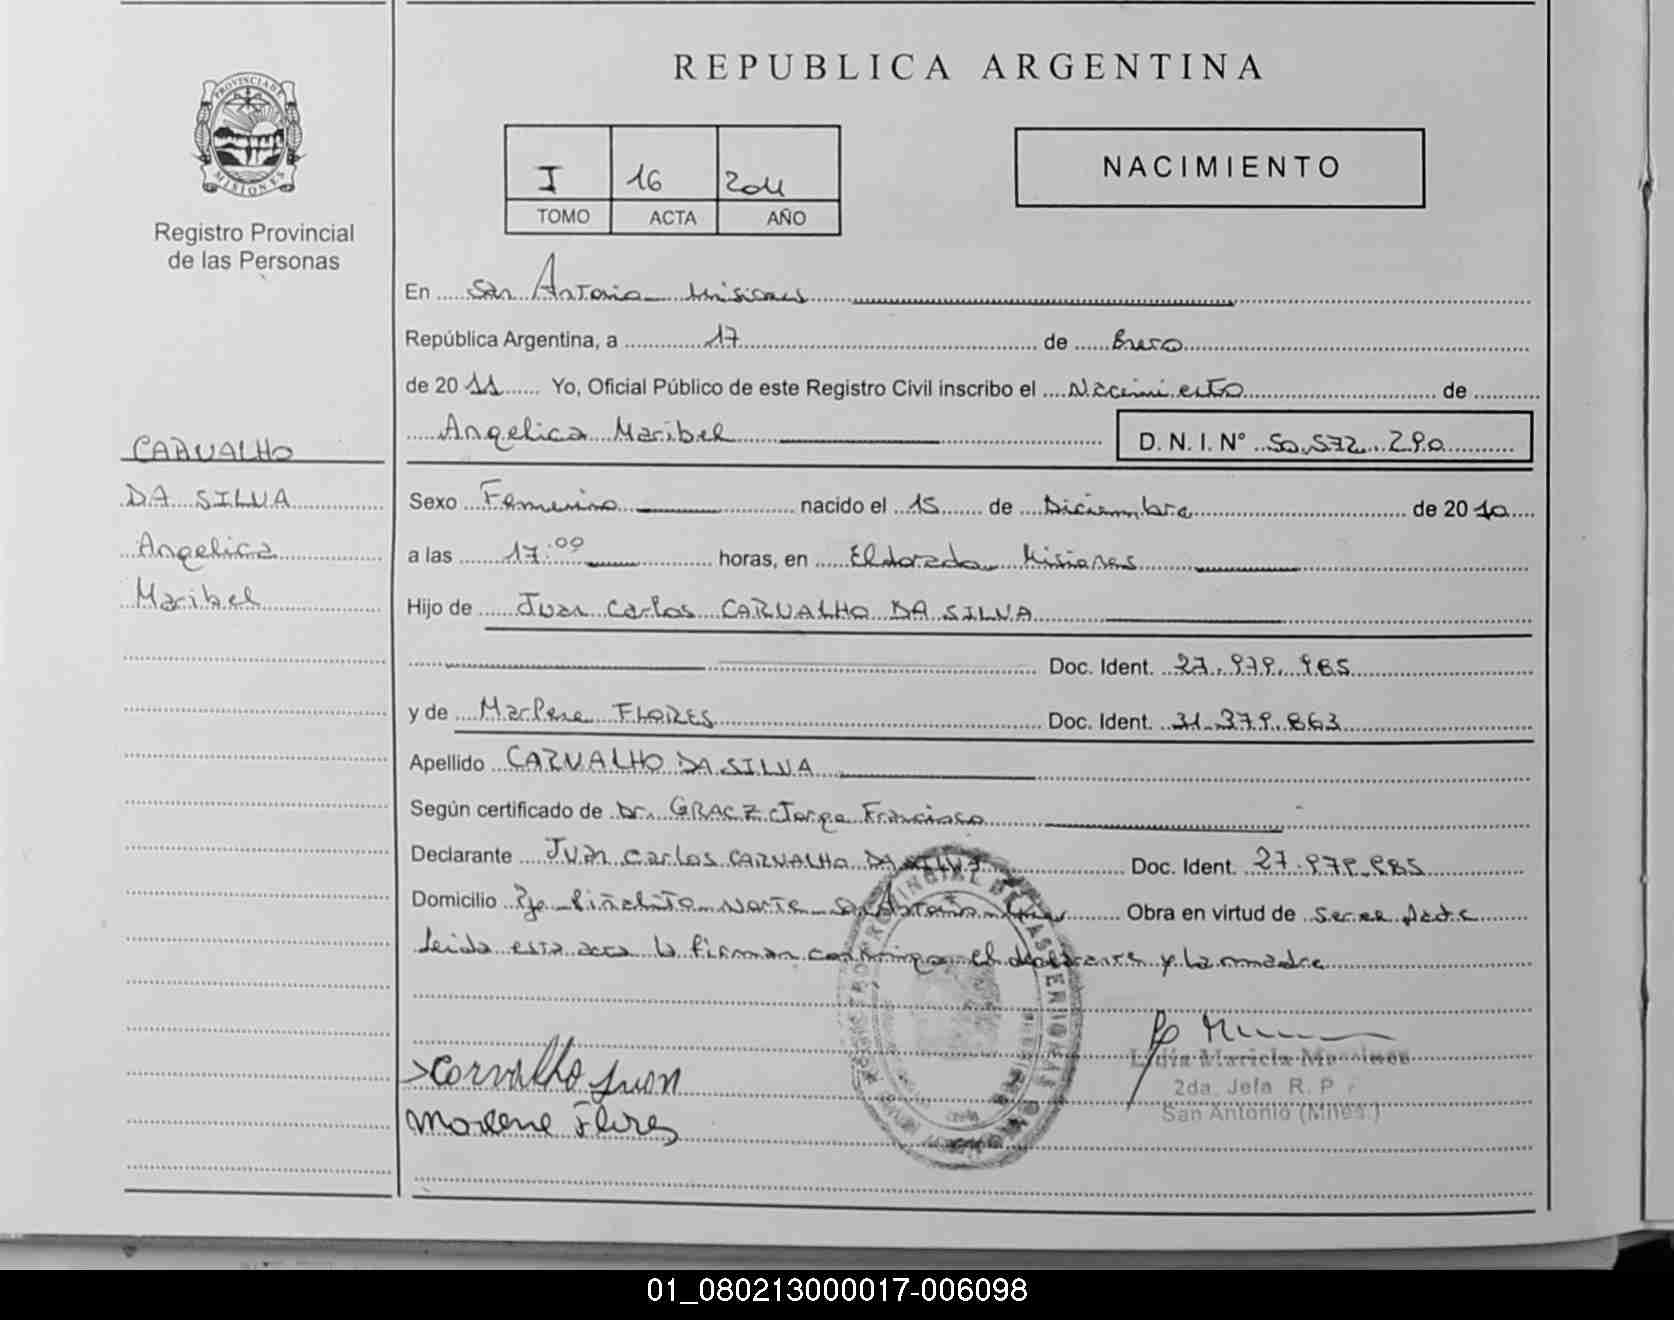 REPUBLICA ARGENTINA
PROVINCIA DE MISIONES
Registro Provincial
de las Personas
I 16 2011
TOMO ACTA AÑO
NACIMIENTO
En San Antonio Misiones
República Argentina, a 17 de Enero
de 20 11 Yo, Oficial Público de este Registro Civil inscribo el Nacimiento de
Angelica Maribel D. N. I. N° 50.572.290
CARVALHO
DA SILVA
Angelica
Maribel
Sexo Femenino nacido el 15 de Diciembre de 20 10
a las 17:00 horas, en Eldorado Misiones
Hijo de Juan Carlos CARVALHO DA SILVA
Doc. Ident. 27.979.985
y de Marlene FLORES Doc. Ident. 31.379.863
Apellido CARVALHO DA SILVA
Según certificado de Dr. GRACZ Jorge Francisco
Declarante Juan Carlos CARVALHO DA SILVA Doc. Ident. 27.979.985
Domicilio Pje Piñalito Norte San Antonio Obra en virtud de
Leida esta acta la firman conmigo el declarante y la madre
Carvalho Juan
Marlene Flores
Lidia Mariela
2da. Jefa R. P.
San Antonio (Mnes.)
01_080213000017-006098